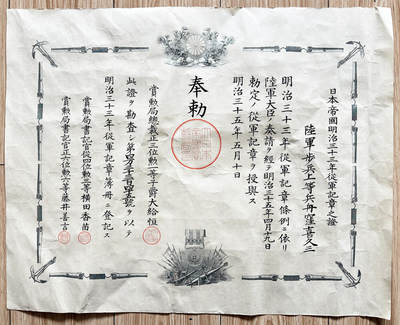 日本帝國明治三十三年從軍記章之證
陸軍歩兵上等兵舟窪喜久三
明治三十三年從軍記章條例ニ依リ
陸軍大臣ノ奏請ヲ經テ明治三十五年四月十九日
勅定ノ從軍記章ヲ授與ス
明治三十五年五月十日
奉勅
賞勲局總裁正三位勲一等子爵大給恒
此證ヲ勘査シ第 號ヲ以テ
明治三十三年從軍記章簿冊ニ登記ス
賞勲局書記官從四位勲三等横田香苗
賞勲局書記官正六位勲六等藤井善言